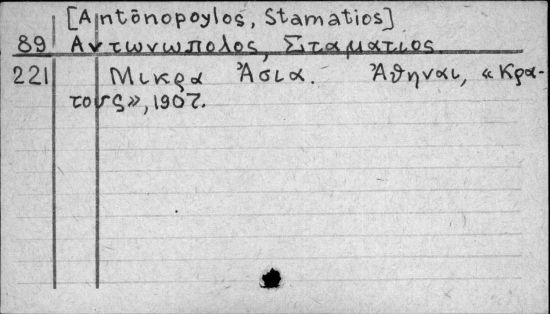 [Antōnopoylos, Stamatios]
89 Αντωνωπολος, Σιταματιος
221 Μικρα Ἀσια. Ἀθηναι, «Κρα-
τους», 1907.